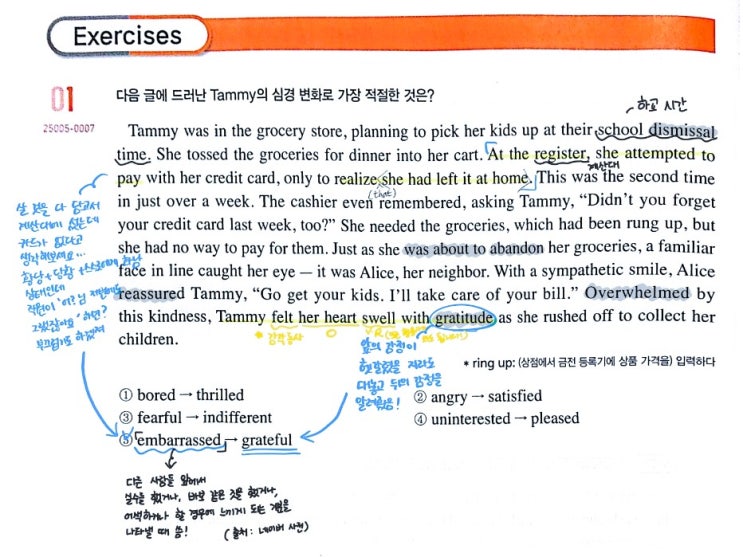 Exercises
01
다음 글에 드러난 Tammy의 심경 변화로 가장 적절한 것은?
25005-0007
하교 시간
Tammy was in the grocery store, planning to pick her kids up at their school dismissal
time. She tossed the groceries for dinner into her cart. At the register, she attempted to
계산대
pay with her credit card, only to realize she had left it at home. This was the second time
(that)
in just over a week. The cashier even remembered, asking Tammy, “Didn’t you forget
your credit card last week, too?” She needed the groceries, which had been rung up, but
she had no way to pay for them. Just as she was about to abandon her groceries, a familiar
face in line caught her eye — it was Alice, her neighbor. With a sympathetic smile, Alice
reassured Tammy, “Go get your kids. I’ll take care of your bill.” Overwhelmed by
this kindness, Tammy felt her heart swell with gratitude as she rushed off to collect her
children.
살 것을 다 담고서
계산대에 섰는데
카드가 없다고
생각해보세요...
상태인데
부끄럽기도 하겠져
* 감각동사
앞의 감정이
헷갈렸을 지라도
뒤의 감정을
* ring up: (상점에서 금전 등록기에 상품 가격을) 입력하다
① bored → thrilled
② angry → satisfied
③ fearful → indifferent
④ uninterested → pleased
⑤ embarrassed → grateful
다른 사람들 앞에서
실수를 했거나, 바보 같은 것을 했거나,
어색하거나 할 경우에 느끼게 되는 감정을
나타낼 때 씀!
(출처: 네이버 사전)